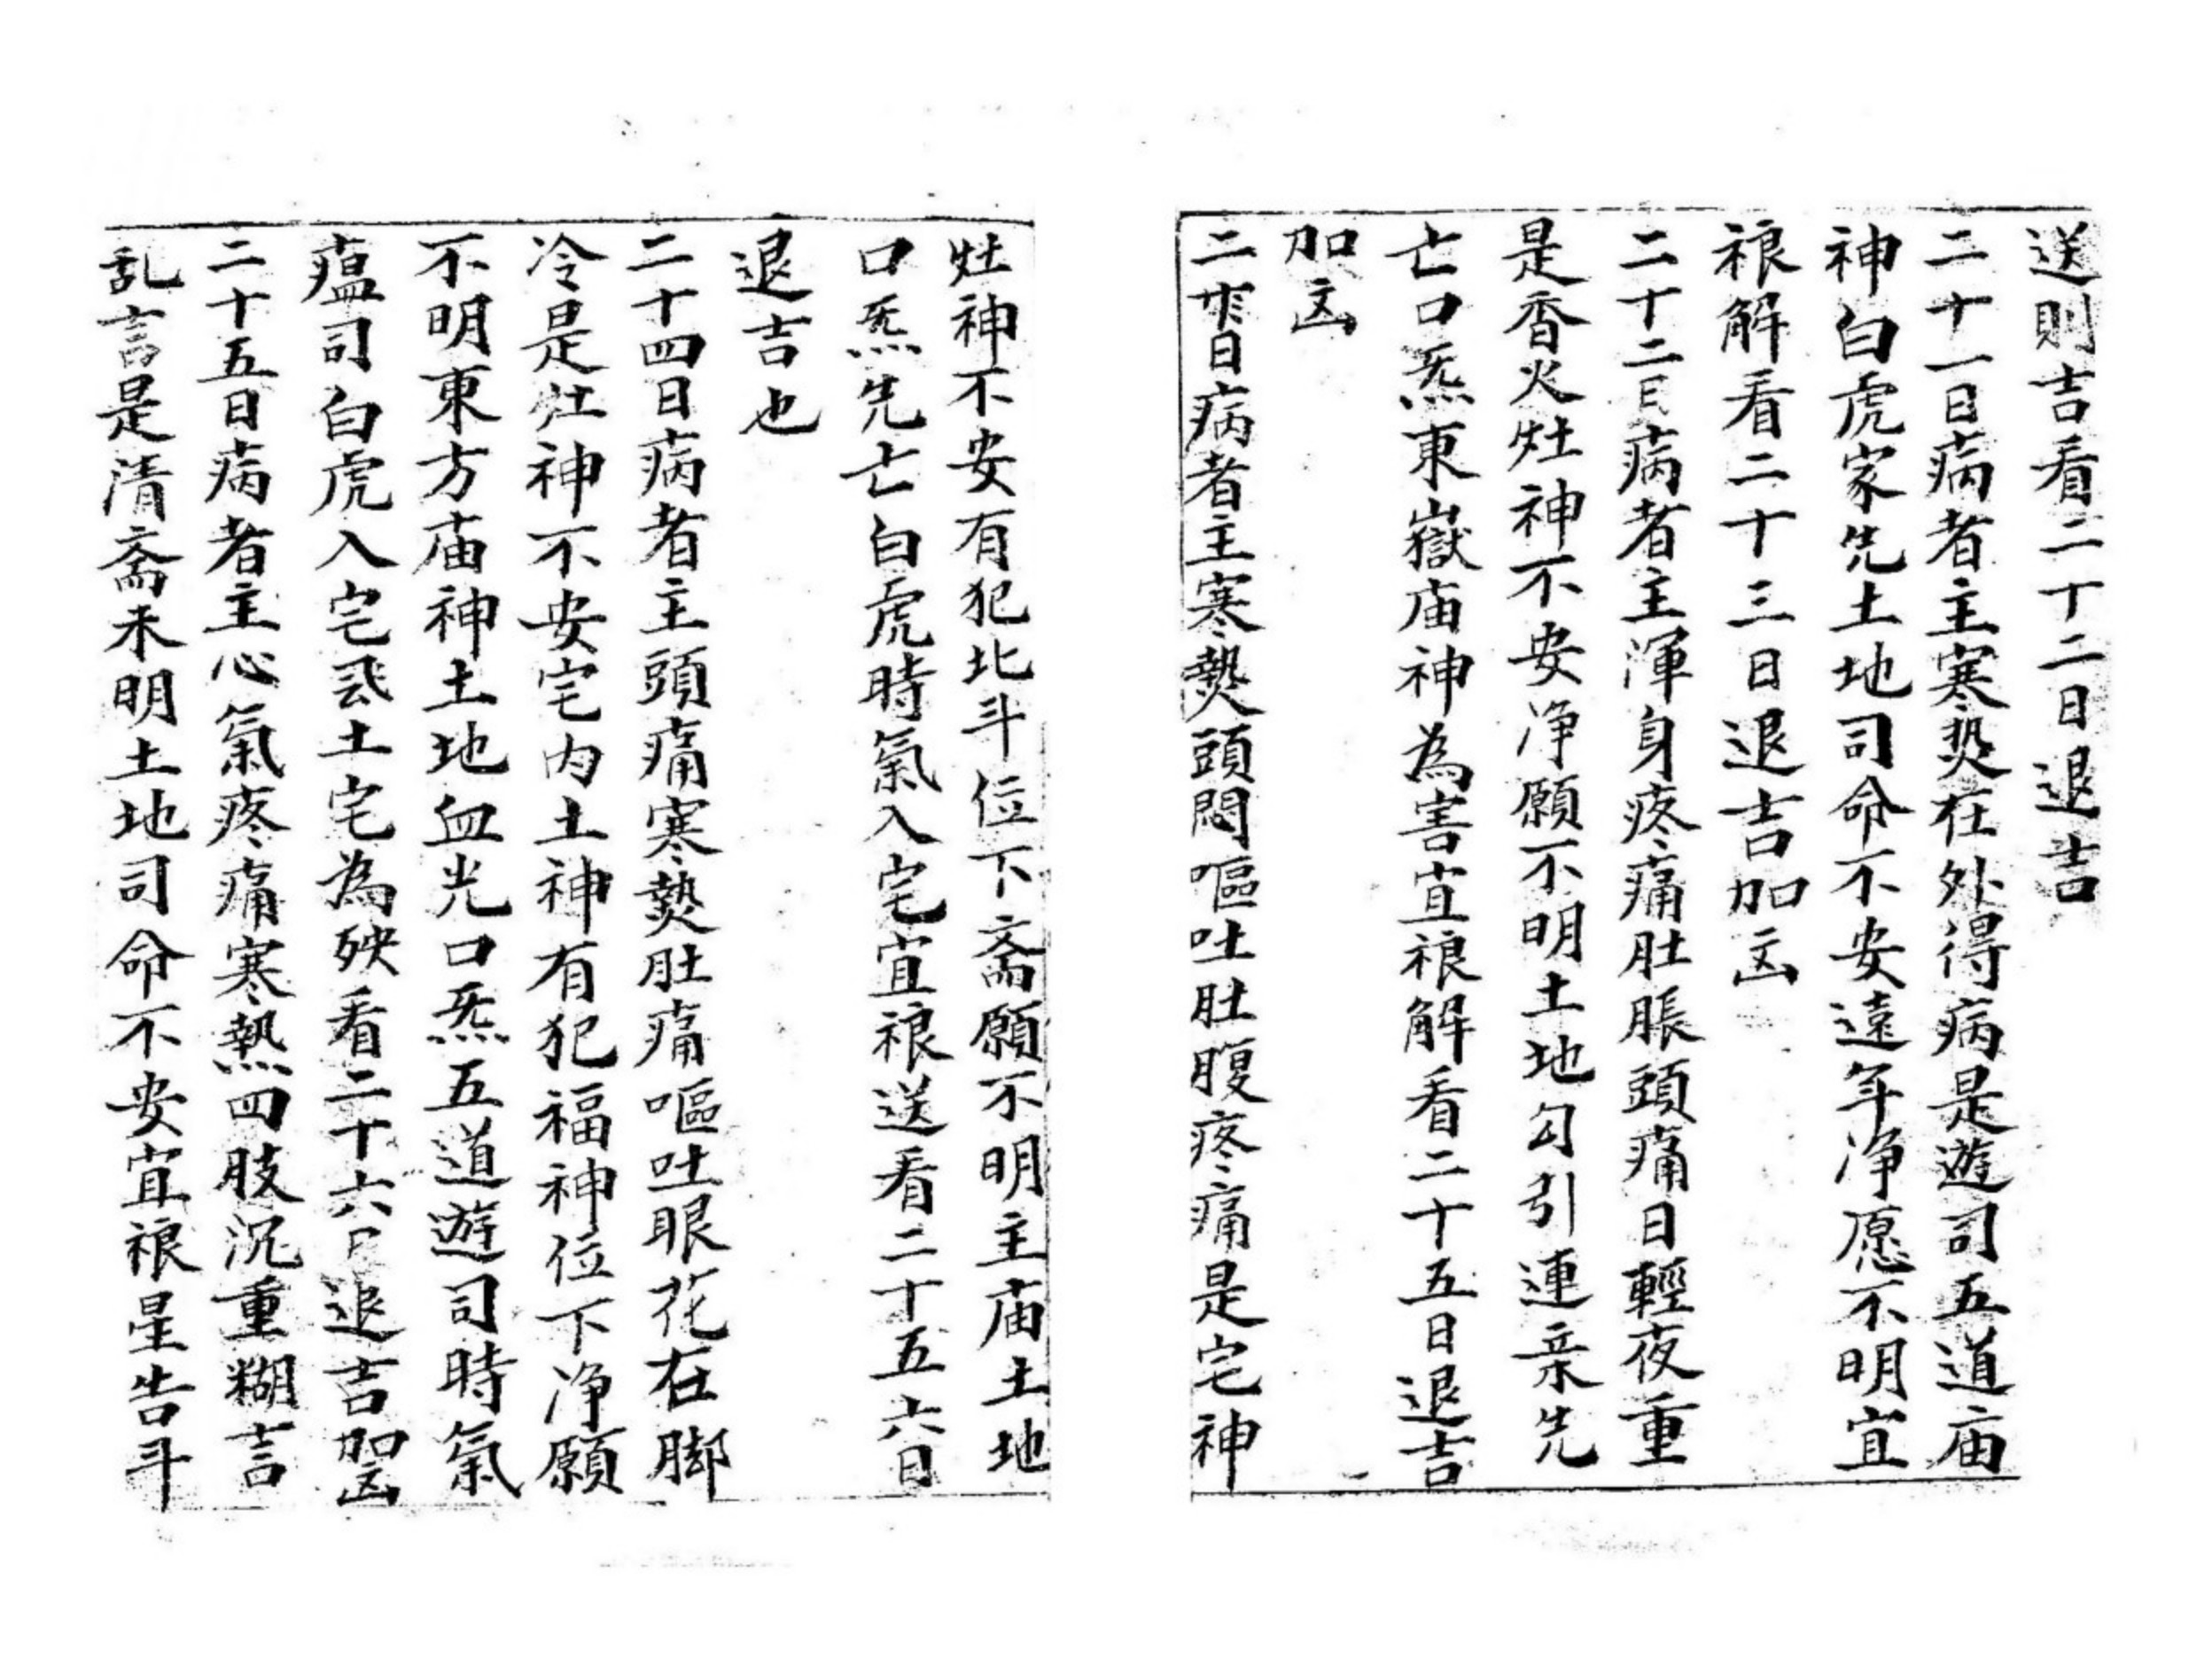 送則吉看二十二日退吉
二十一日病者主寒热在外得病是遊司五道庙
神白虎家先土地司命不安遠年净愿不明宜
禳解看二十三日退吉加凶
二十二日病者主渾身疼痛肚脹頭痛日輕夜重
是香火灶神不安净願不明土地勾引連亲先
亡口炁東嶽庙神為害宜禳解看二十五日退吉
加凶
二十三日病者主寒熱頭悶嘔吐肚腹疼痛是宅神
灶神不安有犯北斗位下斋願不明主庙土地
口炁先亡白虎時氣入宅宜禳送看二十五六日
退吉也
二十四日病者主頭痛寒熱肚痛嘔吐眼花在脚
冷是灶神不安宅内土神有犯福神位下净願
不明東方庙神土地血光口炁五道遊司時氣
瘟司白虎入宅飛土宅為殃看二十六日退吉加凶
二十五日病者主心氣疼痛寒熱四肢沉重糊言
乱言是清斋未明土地司命不安宜禳星告斗